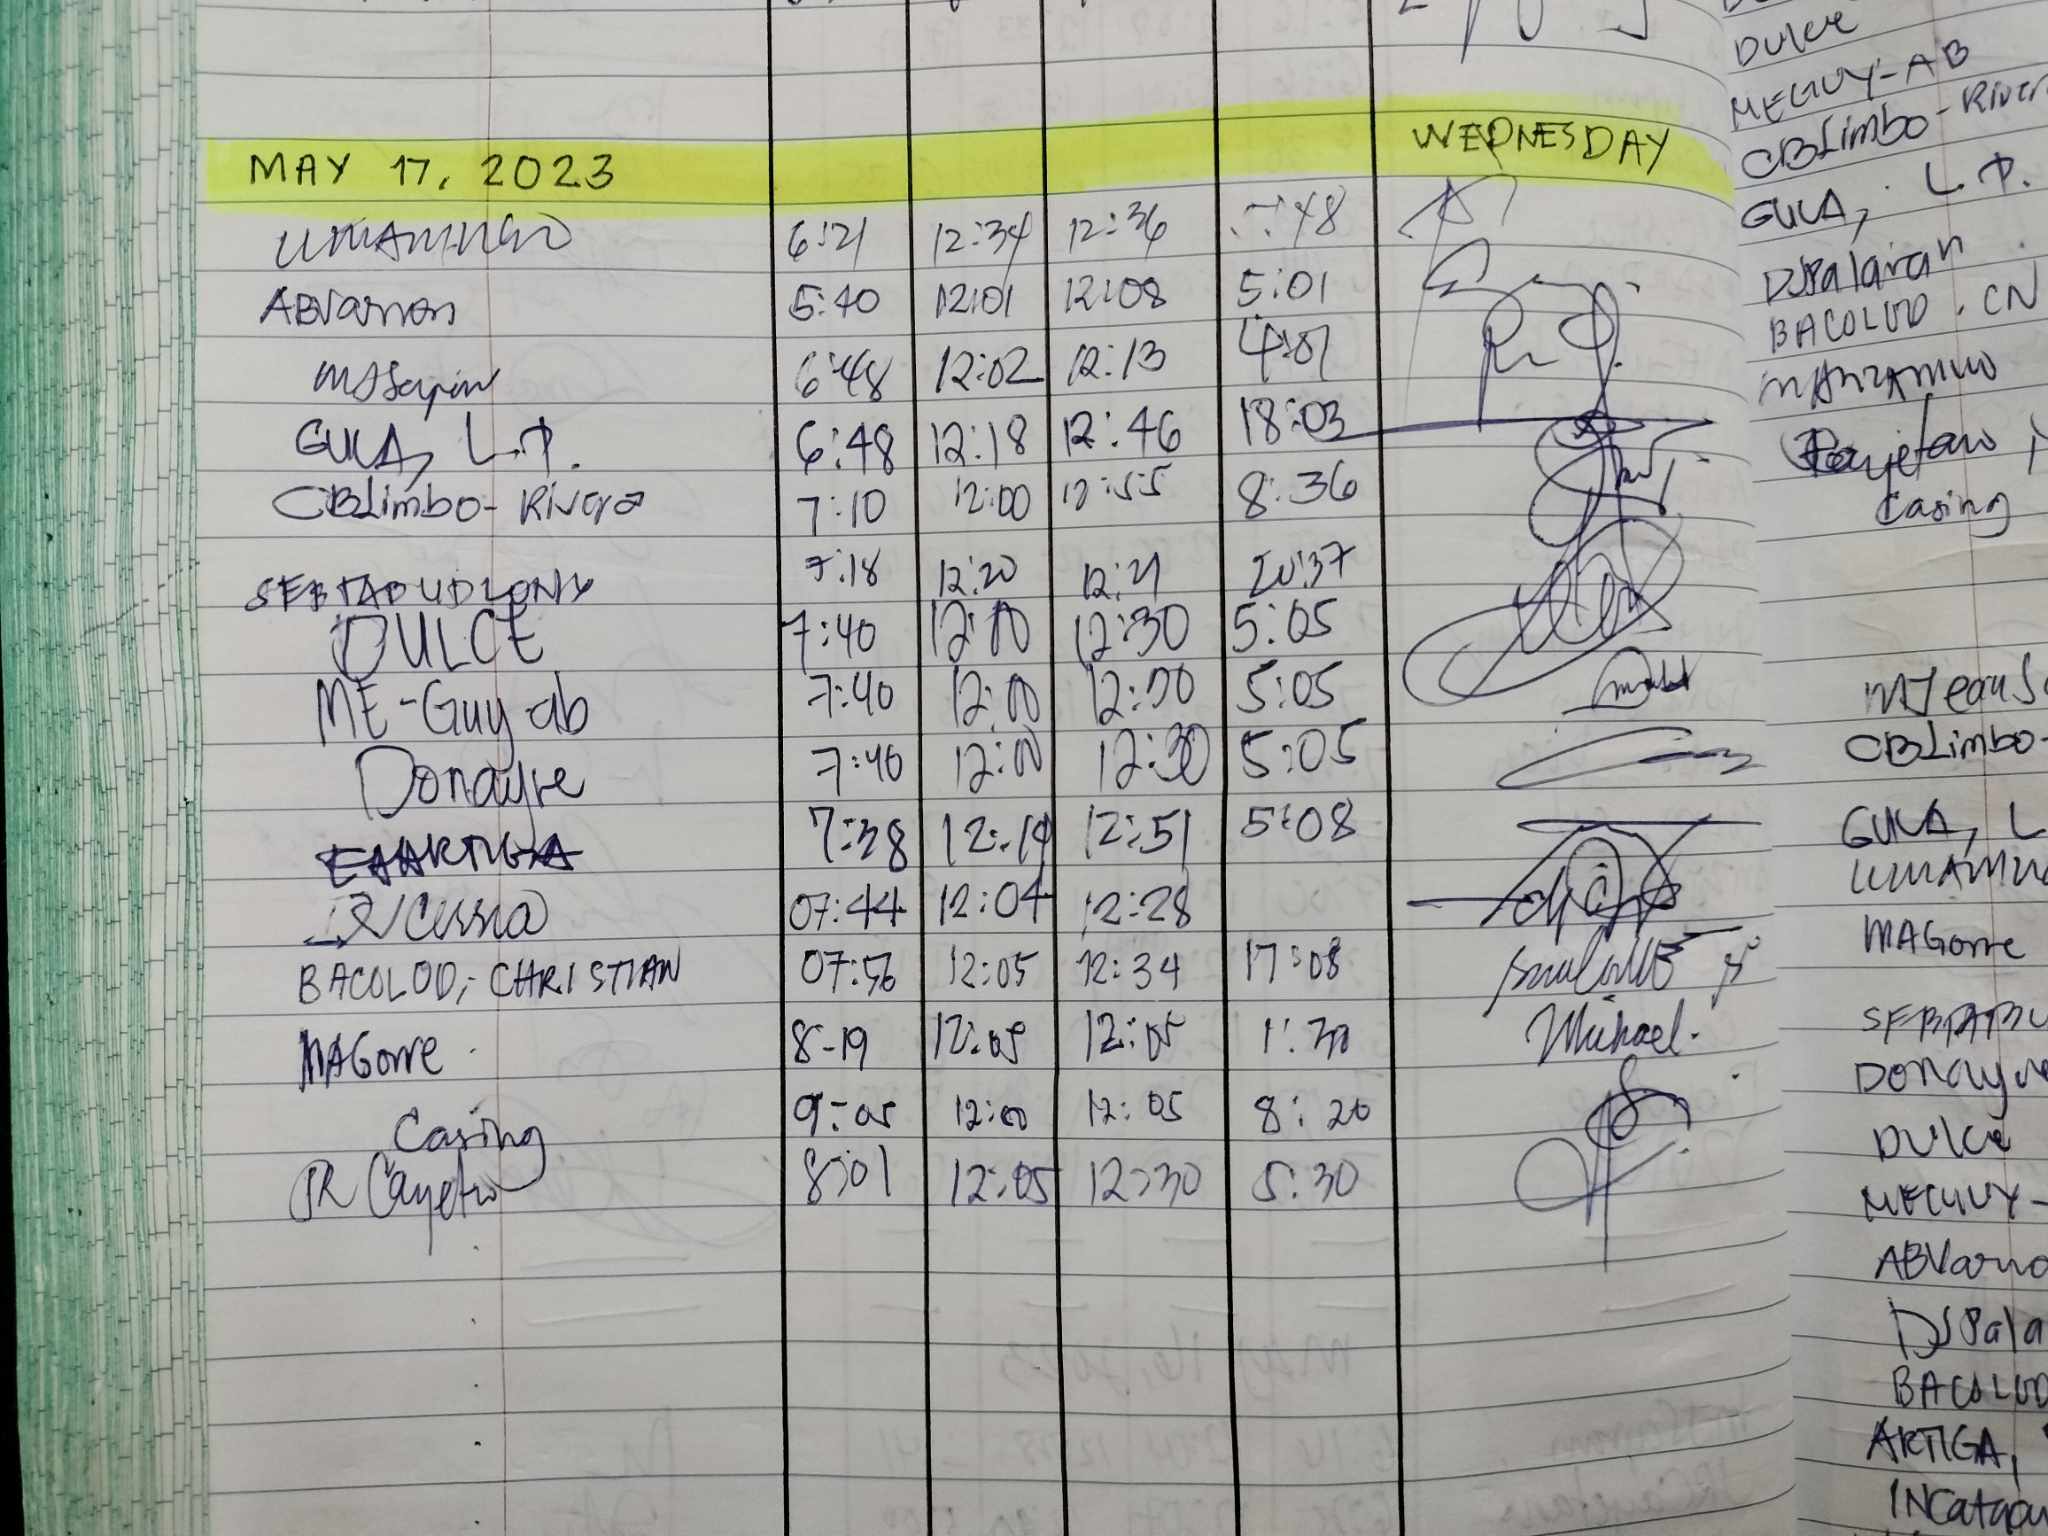 MAY 17, 2023 WEDNESDAY
6:21 12:34 12:36 :48
5:40 12:01 12:08 5:01
6:48 12:02 12:13 4:01
GULA, L.P. 6:48 12:18 12:46 18:03
CBLimbo-Rivera 7:10 12:00 12:55 8:36
7:18 12:20 12:21 20:37
DULCE 7:40 12:00 12:30 5:05
ME-Guy-ab 7:40 12:00 12:00 5:05
Donayre 7:40 12:00 12:30 5:05
EAARTIGA 7:38 12:19 12:51 5:08
07:44 12:04 12:28
BACOLOD, CHRISTIAN 07:56 12:05 12:34 17:08
MAGorre 8-19 12:05 12:05 1:30 Michael.
Casing 9:05 12:00 12:05 8:20
JR Cayetano 8:01 12:05 12:30 5:30
Dulce
MEGUY-AB
CBLimbo-River
GULA, L.P.
DJPalaran
BACOLOD, CN
Casing
CBLimbo-
GULA, L
MAGorre
Donayre
DULCE
MEGUY-
ABVarro
DJPala
BACOLOD
ARTIGA,